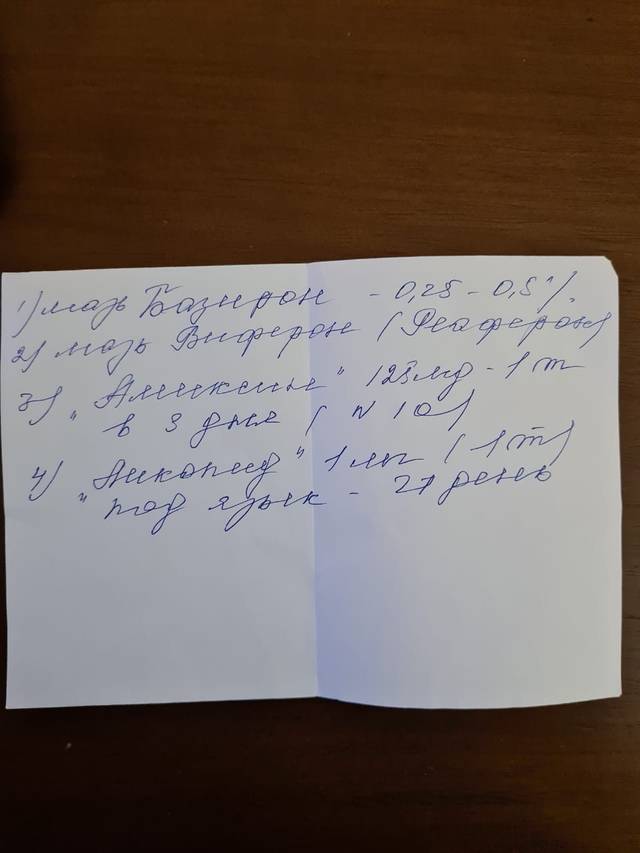 1) мазь Базирон - 0,25 - 0,5%
2) мазь Виферон (Реаферон)
3) "Амиксин" 125мд - 1 т
в 3 дня (N 10)
4) "Ликопид" 1 мг (1 т)
под язык - 21 день